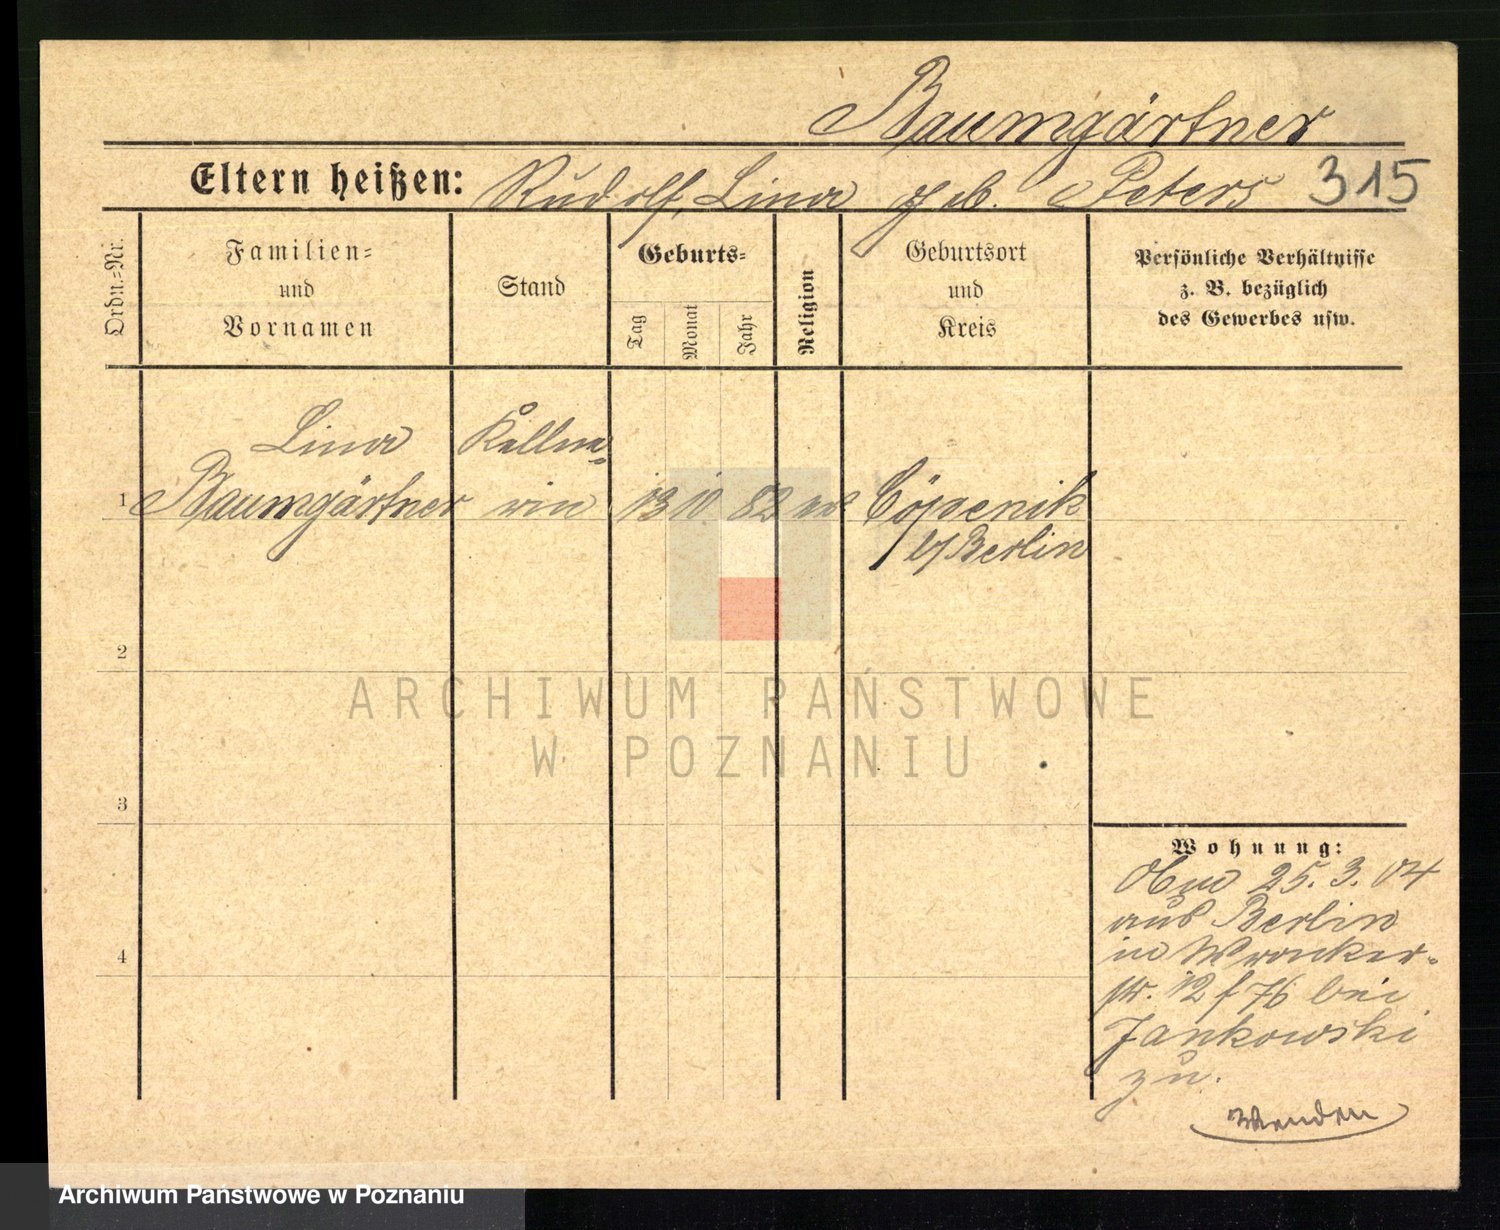 Baumgärtner
Eltern heißen: Rudolf, Lina geb. Peters 315
Ordn.-Nr.
Familien-
und
Vornamen
Stand
Geburts-
Tag
Monat
Jahr
Religion
Geburtsort
und
Kreis
Persönliche Verhältnisse
z. B. bezüglich
des Gewerbes usw.
Lina Kellne-
1 Baumgärtner rin 13 10 82 ev Cöpenik
b/Berlin
2
3
4
Wohnung:
Am 25. 3. 04
aus Berlin
in Wronker-
str. 12 f 76 bei
Jankowski
zu.
Wenden
ARCHIWUM PAŃSTWOWE
W POZNANIU
Archiwum Państwowe w Poznaniu